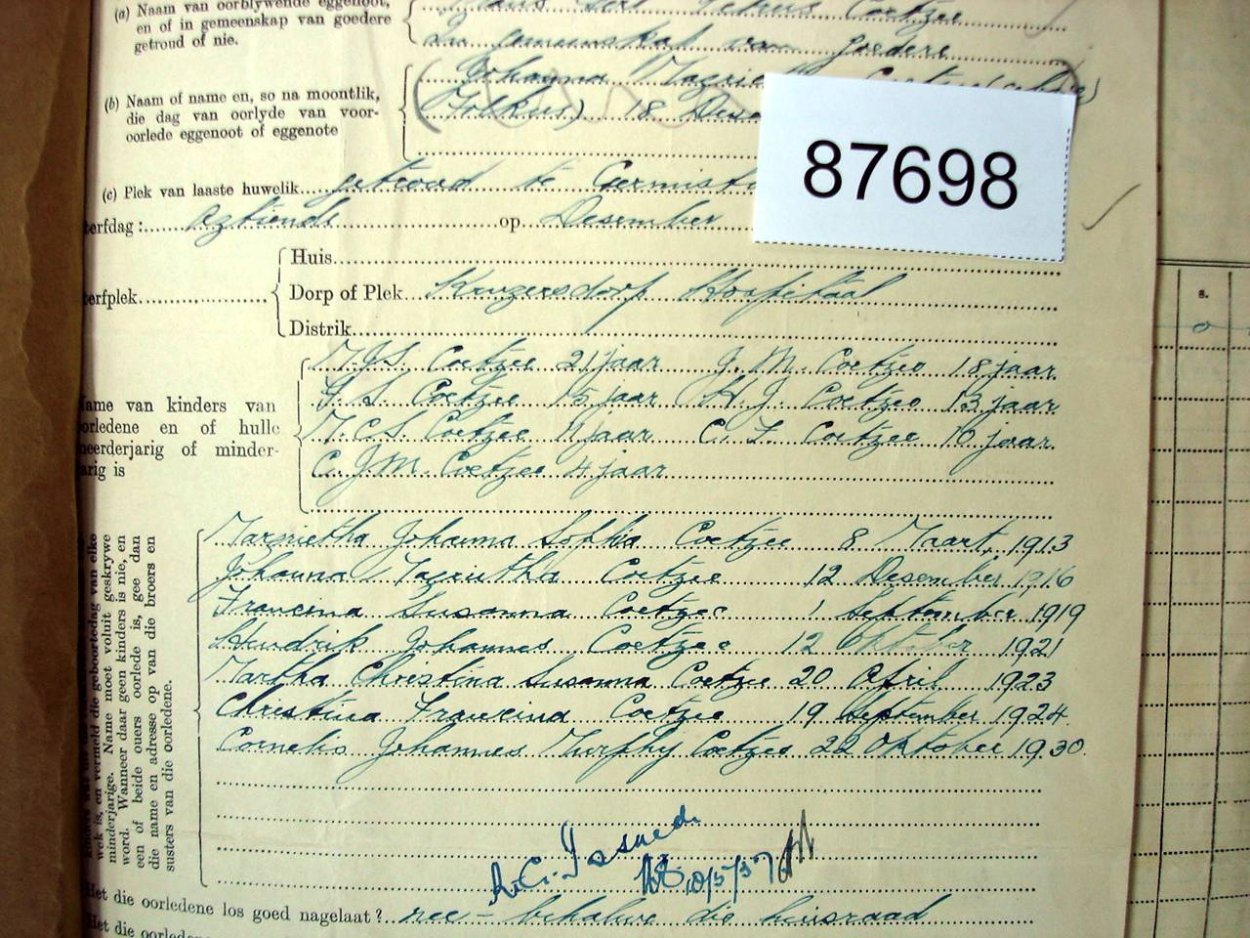 (a) Naam van oorblywende eggenoot,
en of in gemeenskap van goedere
getroud of nie.
Petrus Coetzee
in gemeenskap van goedere
(b) Naam of name en, so na moontlik,
die dag van oorlyde van voor-
oorlede eggenoot of eggenote
Johanna
18
87698
(c) Plek van laaste huwelik getroud te
erfdag: agtiende op Desember
Huis
erfplek Dorp of Plek Krugersdorp Hospitaal
Distrik
M.J.S. Coetzee 21 jaar J.M. Coetzee 18 jaar
F.S. Coetzee 15 jaar H.J. Coetzee 13 jaar
M.C.S. Coetzee 11 jaar C.F. Coetzee 10 jaar
C.J.M. Coetzee 4 jaar
ame van kinders van
orledene en of hulle
eerderjarig of minder-
arig is
Johanna Sophia Coetzee 8 Maart, 1913
Johanna Coetzee 12 Desember 1916
Francina Susanna Coetzee 1 September 1919
Hendrik Johannes Coetzee 12 Oktober 1921
Martha Christina Susanna Coetzee 20 April 1923
Christina Francina Coetzee 19 September 1924
Cornelis Johannes Murphy Coetzee 22 Oktober 1930.
wek is, en vermeld die geboortedag van elke
minderjarige. Name moet voluit geskrywe
word. Wanneer daar geen kinders is nie, en
een of beide ouers oorlede is, gee dan
die name en adresse op van die broers en
susters van die oorledene.
s.
o
Het die oorledene los goed nagelaat? nee - behalwe die huisraad
Het die